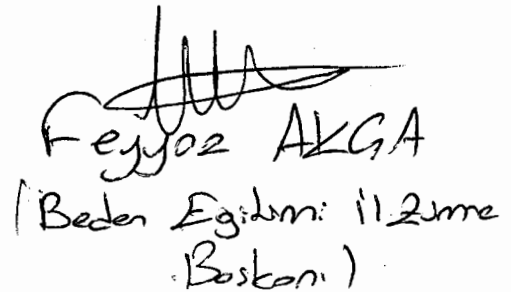 Feyyaz AKGA
(Beden Eğitimi il Zümre
Başkanı)